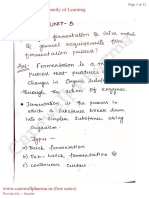 mily of Learning
Page 1 of 12
UNIT- 5
fermentation & Give note
& general requirements for
fermentation process?
Fermentation is a m
process that produces
changes to organic substr
through the action of enzymes
Fermentation is the process in
which a substance break down
into a simpler substance using
organism.
Types -
a) Batch fermentation
b) Fed - batch fermentation &
c) continuous culture
www.carewellpharma.in (free notes)